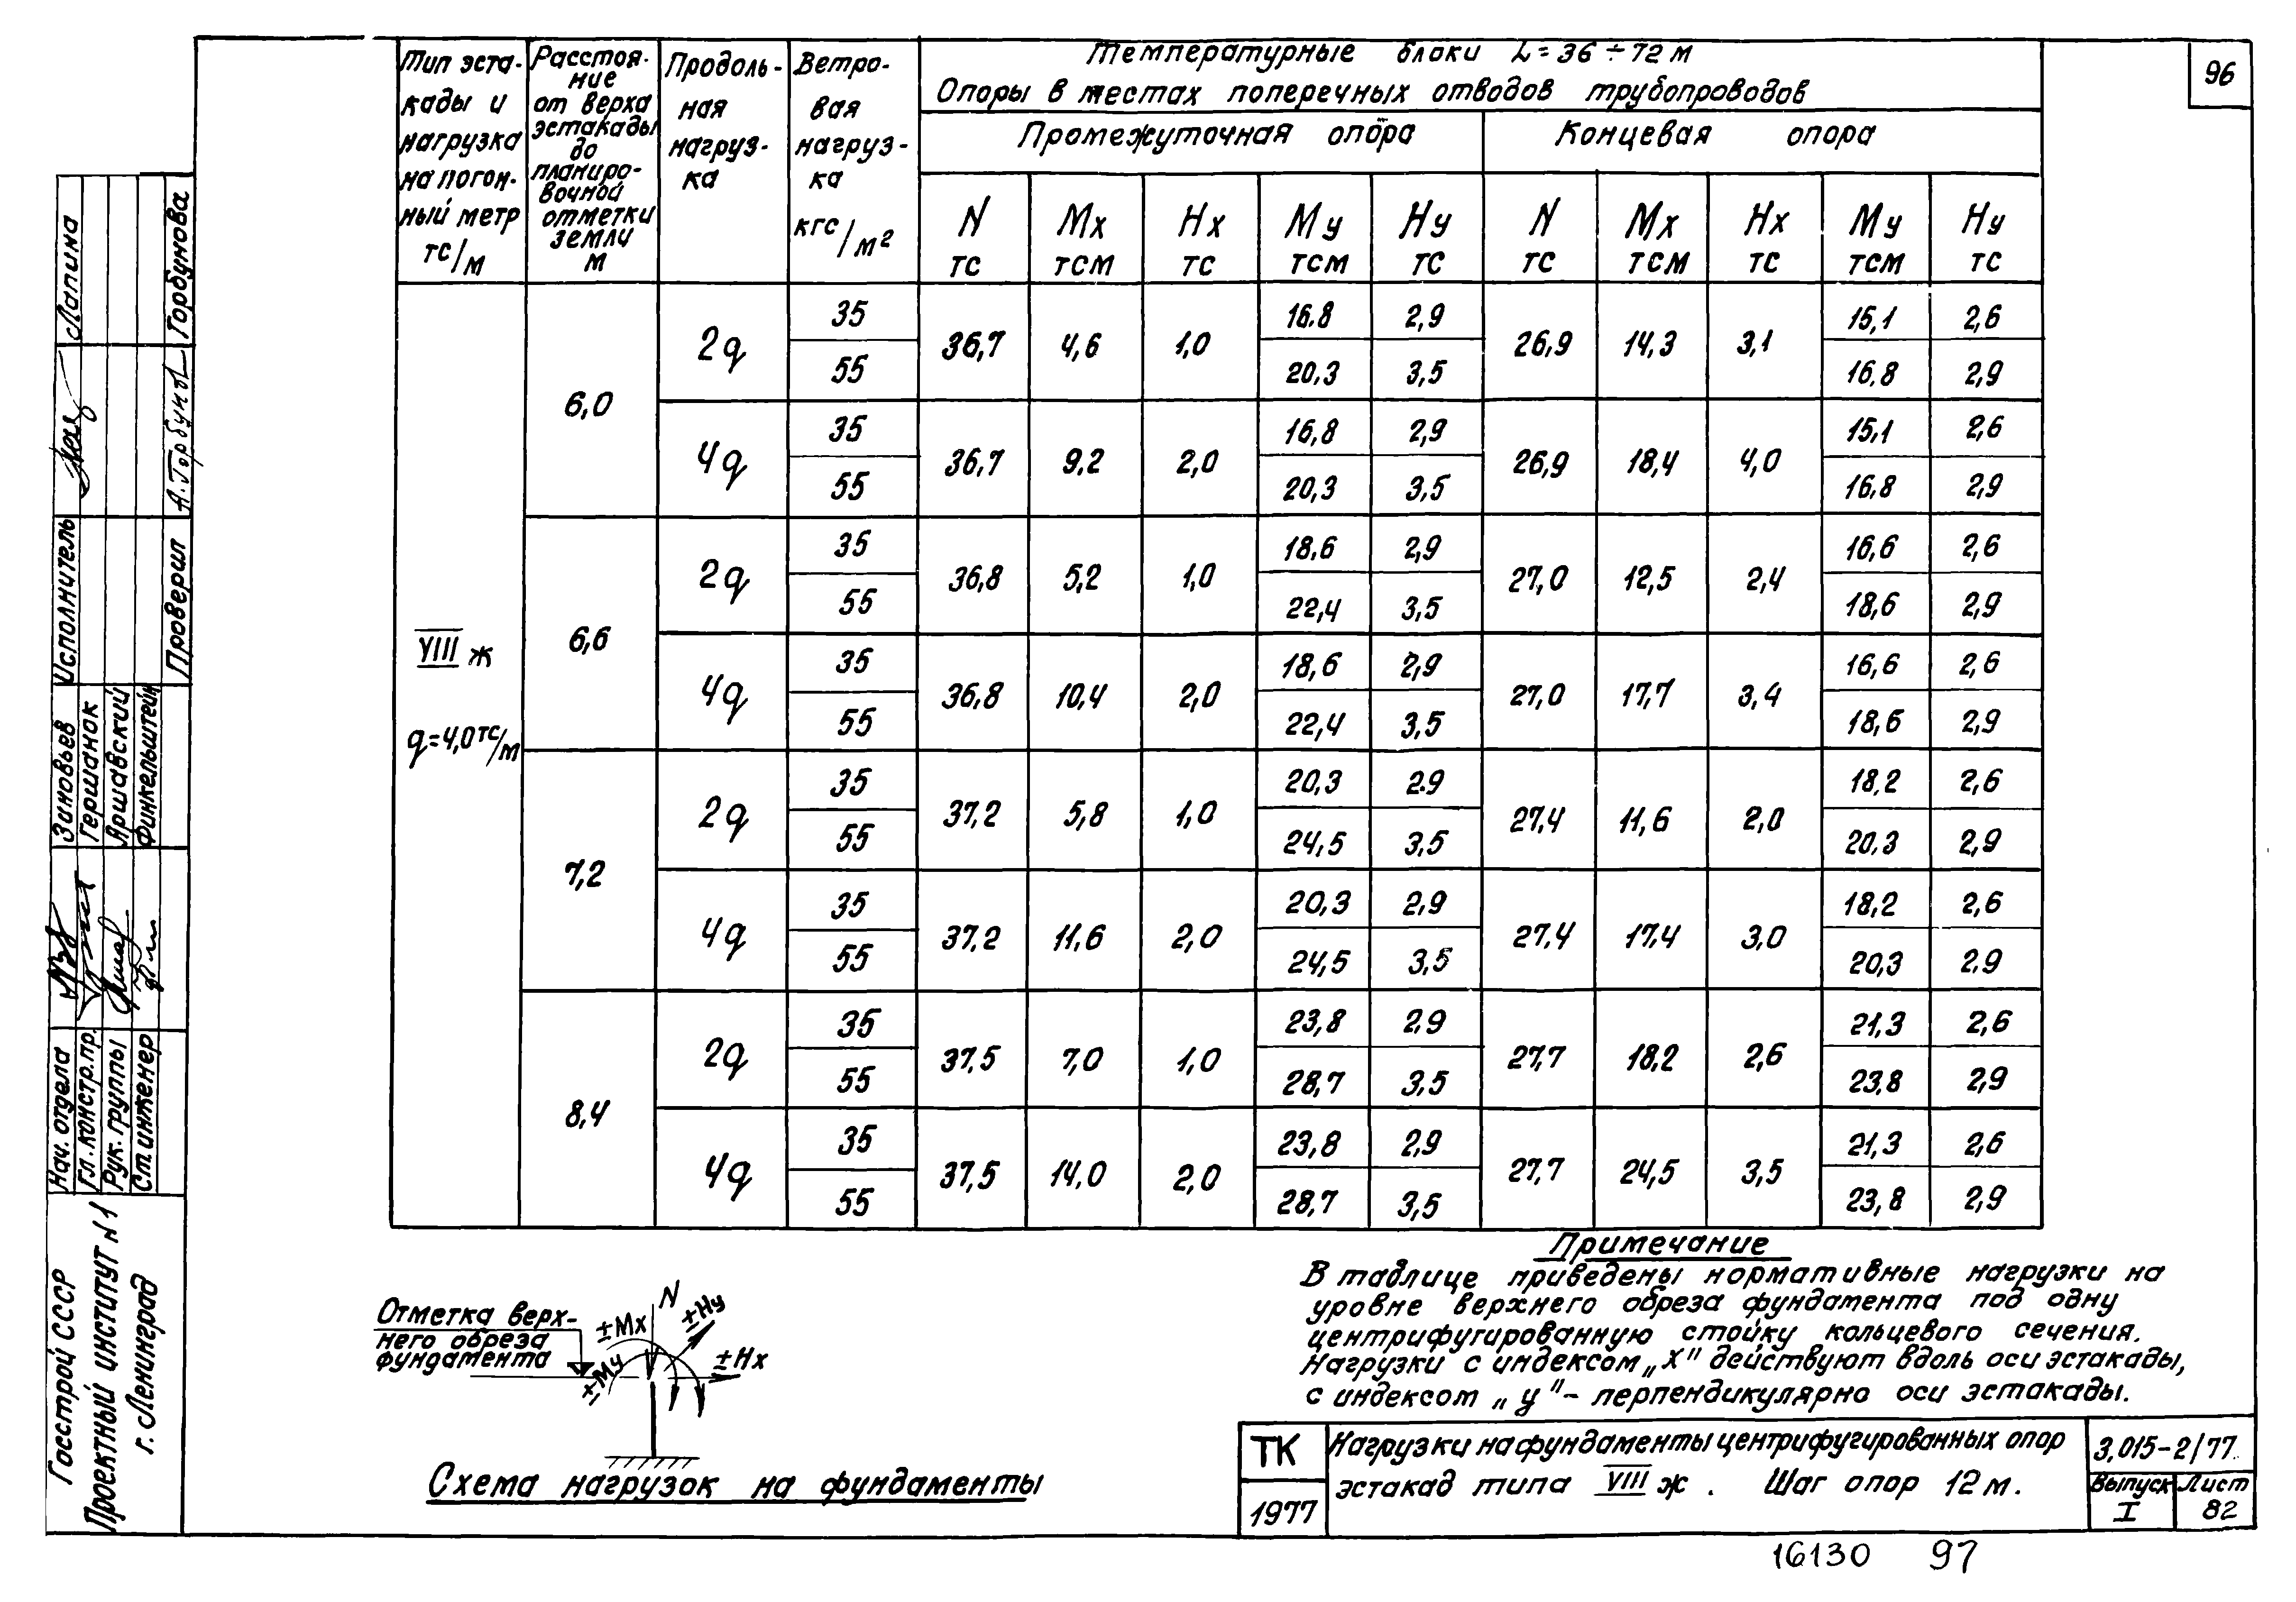 96
Температурные блоки L = 36 ÷ 72 м
Опоры в местах поперечных отводов трубопроводов
Промежуточная опора Концевая опора
Тип эста-
кады и
нагрузка
на погон-
ный метр
тс/м
Расстоя-
ние
от верха
эстакады
до
планиро-
вочной
отметки
земли
м
Продоль-
ная
нагруз-
ка
Ветро-
вая
нагруз-
ка
кгс/м²
N Mx Hx My Hy N Mx Hx My Hy
тс тсм тс тсм тс тс тсм тс тсм тс
VIII ж
q=4,0 тс/м
6,0
2q 35 36,7 4,6 1,0 16.8 2,9 26,9 14,3 3,1 15,1 2,6
55 20,3 3,5 16,8 2,9
4q 35 36,7 9,2 2,0 16,8 2,9 26,9 18,4 4,0 15,1 2,6
55 20,3 3,5 16,8 2,9
6,6
2q 35 36,8 5,2 1,0 18,6 2,9 27,0 12,5 2,4 16,6 2,6
55 22,4 3,5 18,6 2,9
4q 35 36,8 10,4 2,0 18,6 2,9 27,0 17,7 3,4 16,6 2,6
55 22,4 3,5 18,6 2,9
7,2
2q 35 37,2 5,8 1,0 20,3 2.9 27,4 11,6 2,0 18,2 2,6
55 24,5 3,5 20,3 2,9
4q 35 37,2 11,6 2,0 20,3 2,9 27,4 17,4 3,0 18,2 2,6
55 24,5 3,5 20,3 2,9
8,4
2q 35 37,5 7,0 1,0 23,8 2,9 27,7 18,2 2,6 21,3 2,6
55 28,7 3,5 23,8 2,9
4q 35 37,5 14,0 2,0 23,8 2,9 27,7 24,5 3,5 21,3 2,6
55 28,7 3,5 23,8 2,9
Примечание
В таблице приведены нормативные нагрузки на
уровне верхнего обреза фундамента под одну
центрифугированную стойку кольцевого сечения.
Нагрузки с индексом „x" действуют вдоль оси эстакады,
с индексом „у" - перпендикулярно оси эстакады.
Отметка верх-
него обреза
фундамента
N
±Mx
±Hy
±My
±Hx
Схема нагрузок на фундаменты
ТК
1977
Нагрузки на фундаменты центрифугированных опор
эстакад типа VIII ж . Шаг опор 12 м.
3.015-2/77
Выпуск Лист
I 82
16130 97
Госстрой СССР
Проектный институт N1
г. Ленинград
Нач. отдела Зиновьев Исполнитель Лапина
Гл. констр. пр. Гершанок
Рук. группы Аршавский
Ст. инженер Финкельштейн
Проверил А. Горбунова Горбунова